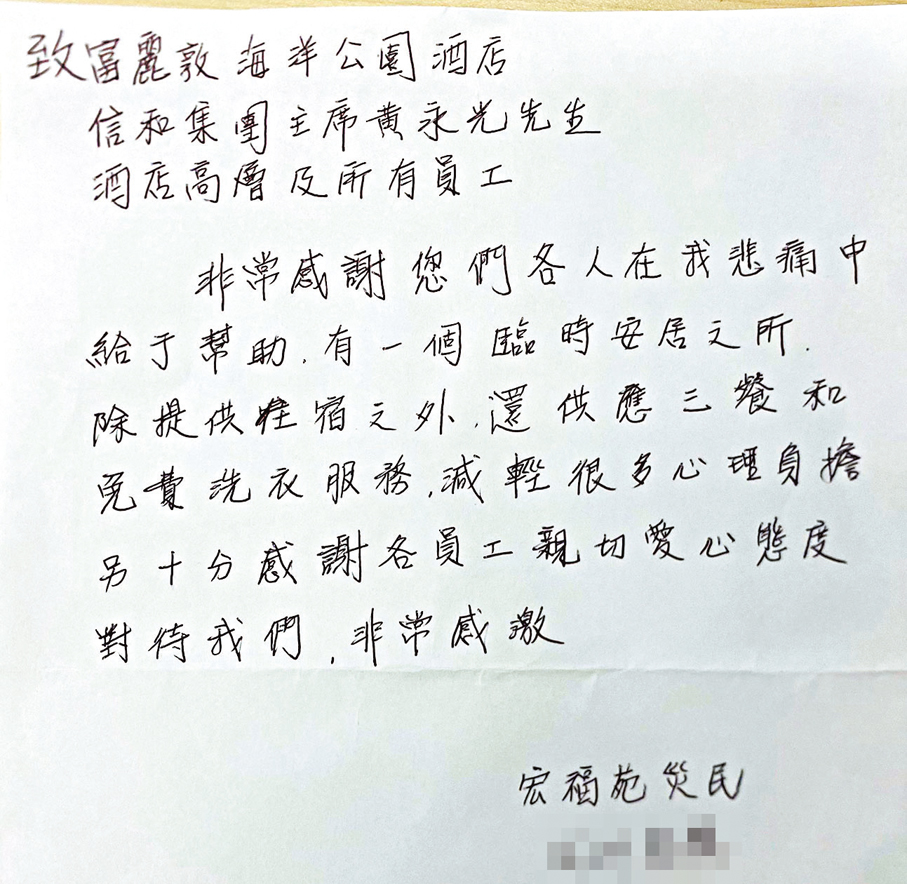 致富麗敦海洋公園酒店
信和集團主席黃永光先生
酒店高層及所有員工
非常感謝您們各人在我悲痛中
給于幫助.有一個臨時安居之所.
除提供住宿之外.還供應三餐和
免費洗衣服務.減輕很多心理負擔
另十分感謝各員工親切愛心態度
對待我們,非常感激
宏福苑災民